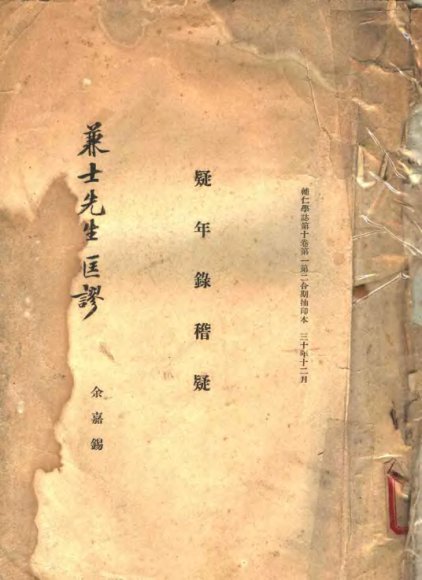 輔仁學誌第十卷第一第二合期抽印本　三十年十二月
疑年錄稽疑
兼士先生匡謬
余嘉錫